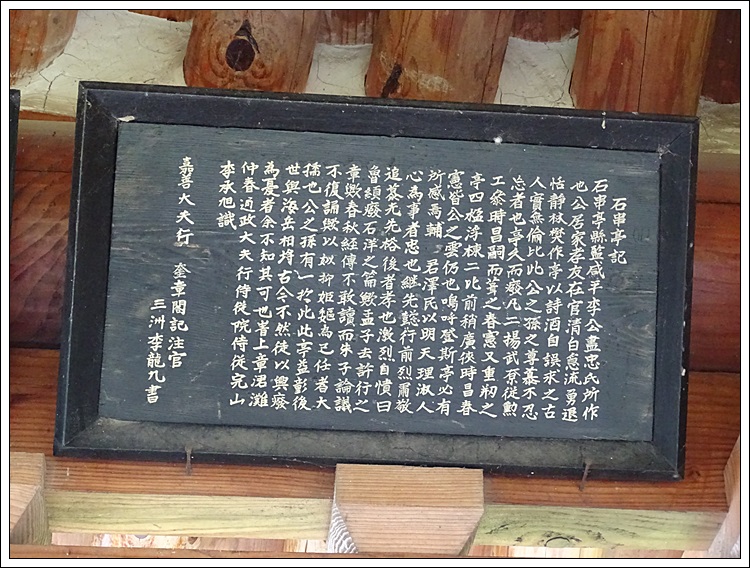 石串亭記
石串亭縣監咸平李公盡忠氏所作
也公居家孝友在官清白急流勇退
恬靜林樊作亭以詩酒自娛求之古
人實無倫比比公之孫之尊慕不忍
忘者也亭久而廢凡二揚武 從勳
工 時昌嗣而葺之春憲又重刱之
亭四楹浮棟二比前稍廣俊時昌春
憲皆公之雲仍也嗚呼登斯亭必有
所感焉輔 君澤氏以明天理淑人
心為事者忠也繼先懿行前烈肅敬
追慕光先裕後者孝也激烈自憤曰
魯頌廢石洋之篇毀孟子去許行之
章燬春秋經傳不敢讀而朱子論議
不復誦毀以 抑姬 為己任者大
儒也公之孫有一於此此亭益彰後
世與海岳相将古今不然徒以興廢
為憂者余不知其可也旹上章涒灘
仲春通政大夫行侍從院侍從完山
李承旭識
嘉善大夫行 奎章閣記注官
三洲李龍九書